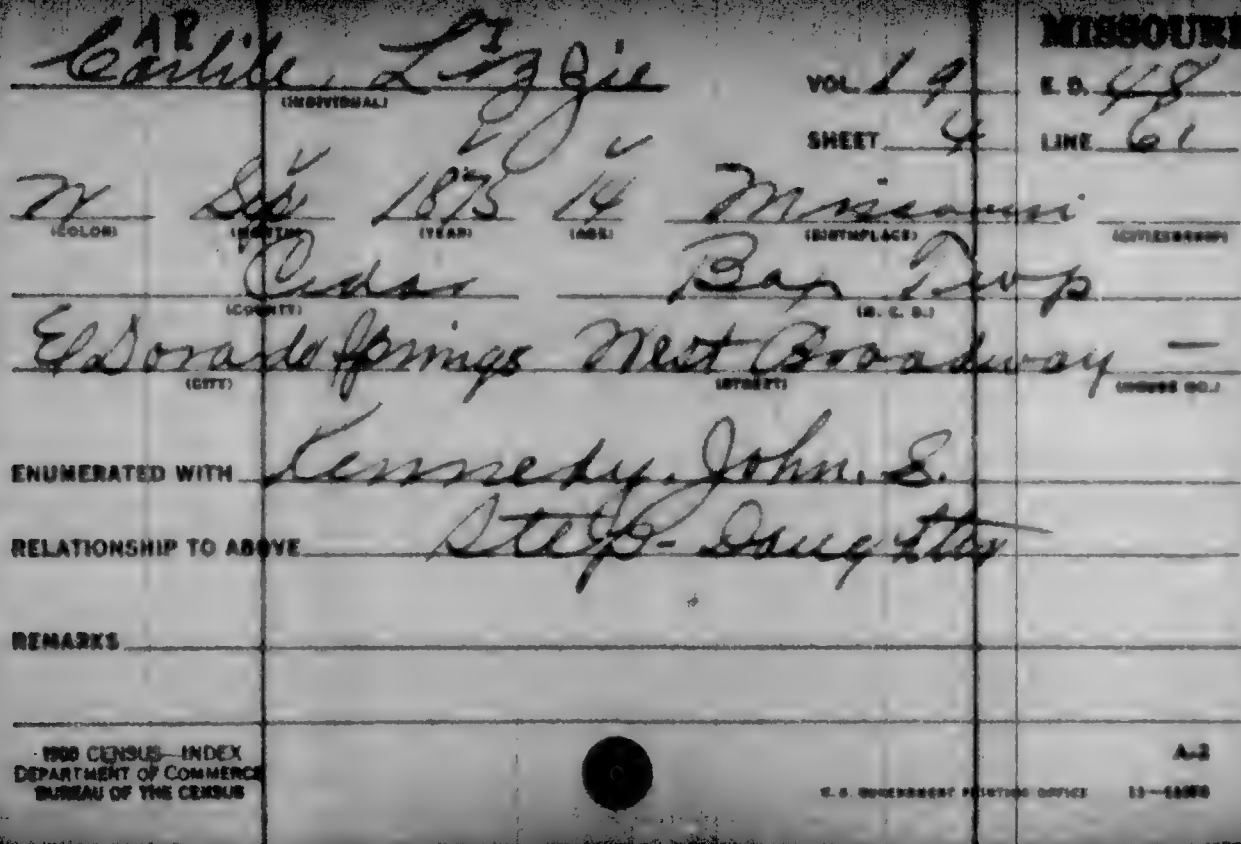 MISSOURI
AR I
Carlile, Lizzie VOL. 19 E. D. 48
(INDIVIDUAL)
SHEET 4 LINE 61
W Sep 1875 14 Missouri
(COLOR) (MONTH) (YEAR) (AGE) (BIRTHPLACE) (CITIZENSHIP)
Cedar Box Twp
(COUNTY) (M. C. D.)
El Dorado Springs West Broadway —
(CITY) (STREET) (HOUSE NO.)
ENUMERATED WITH Kennedy, John. S.
RELATIONSHIP TO ABOVE Step-Daughter
REMARKS
1900 CENSUS—INDEX A-2
DEPARTMENT OF COMMERCE
BUREAU OF THE CENSUS U.S. GOVERNMENT PRINTING OFFICE